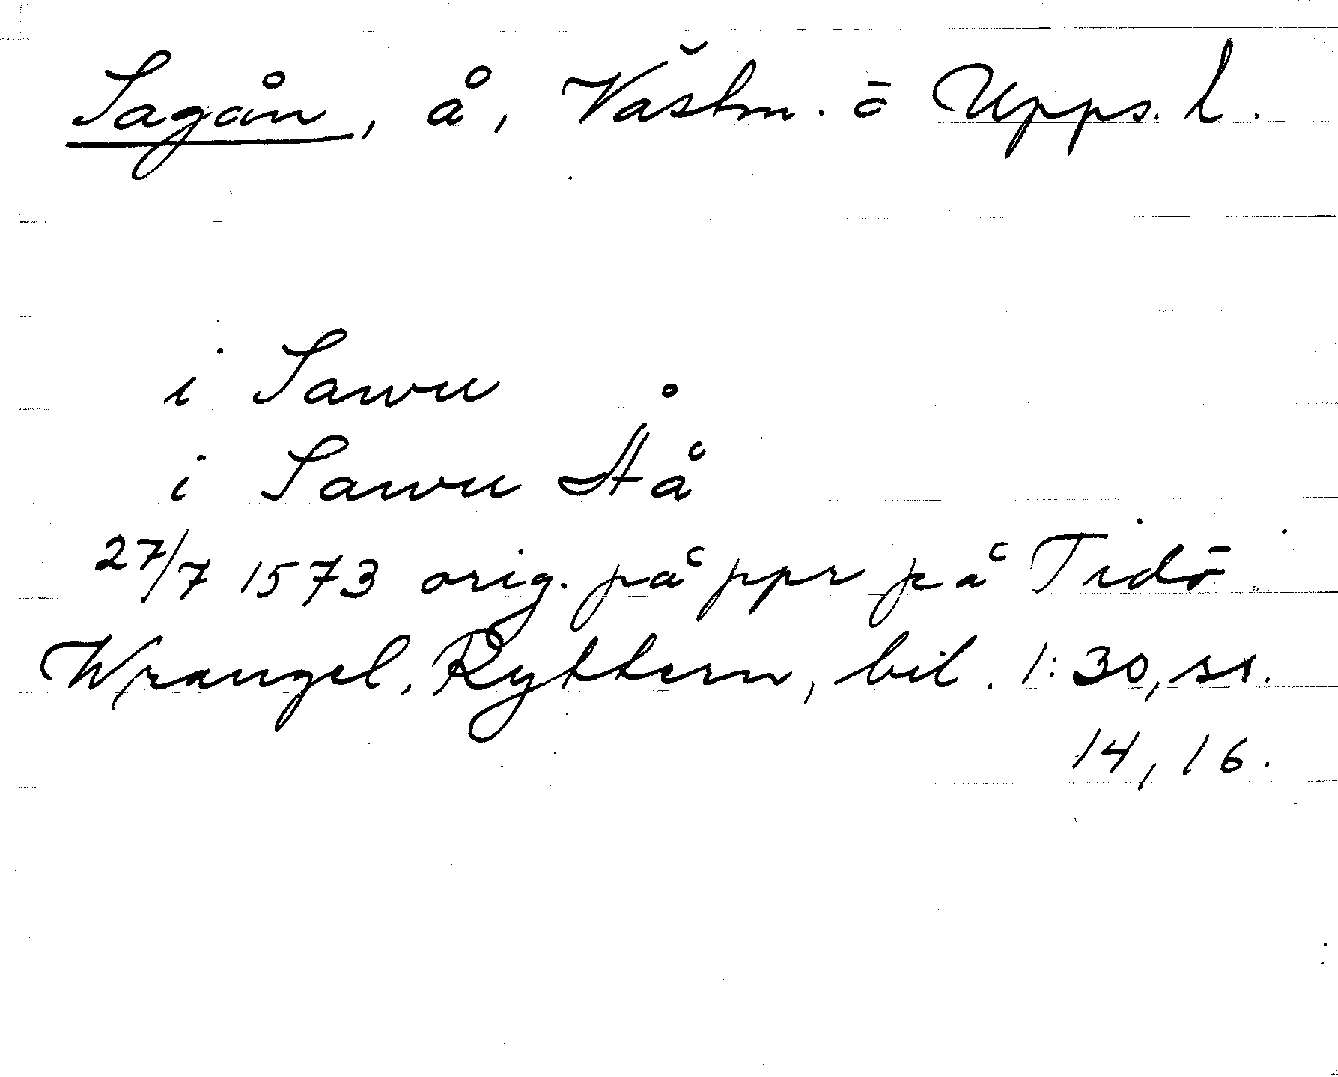 Sagån, å, Västm. o Upps. l.
i Sawu
i Sawu Åå
27/7 1573 orig. på ppr på Tidö
Wrangel, Ryttern, bil. 1:30, ss.
14, 16.